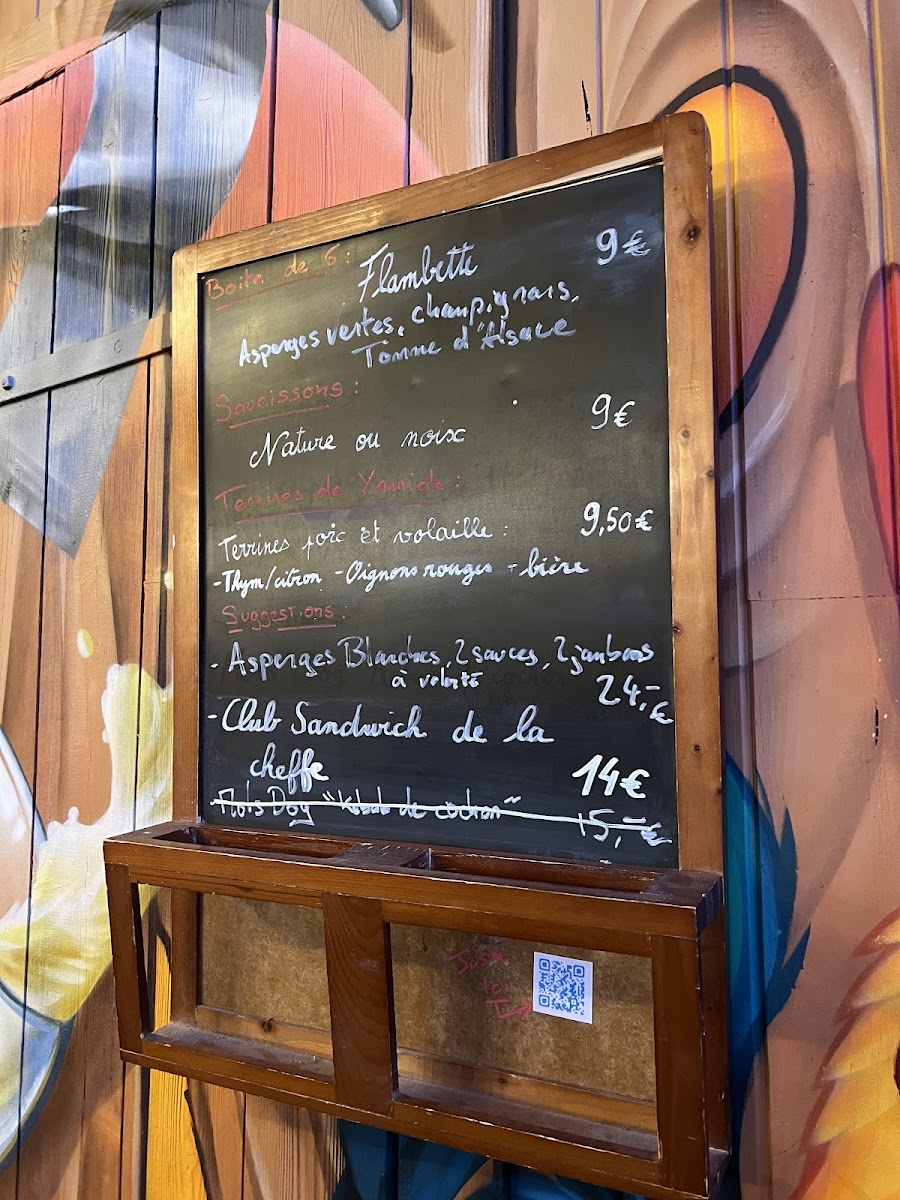 Boite de 6 : Flambette 9€
Asperges vertes, champignons,
Tomme d'Alsace
Saucissons :
Nature ou noix 9€
Terrines de Yannick :
Terrines porc et volaille : 9,50€
- Thym/citron - Oignons rouges - bière
Suggestions :
- Asperges Blanches, 2 sauces, 2 jambons
à volonté 24,-€
- Club Sandwich de la
cheffe 14€
Hot's Dog "Kebab de cochon" 15,-€
Juste
ici